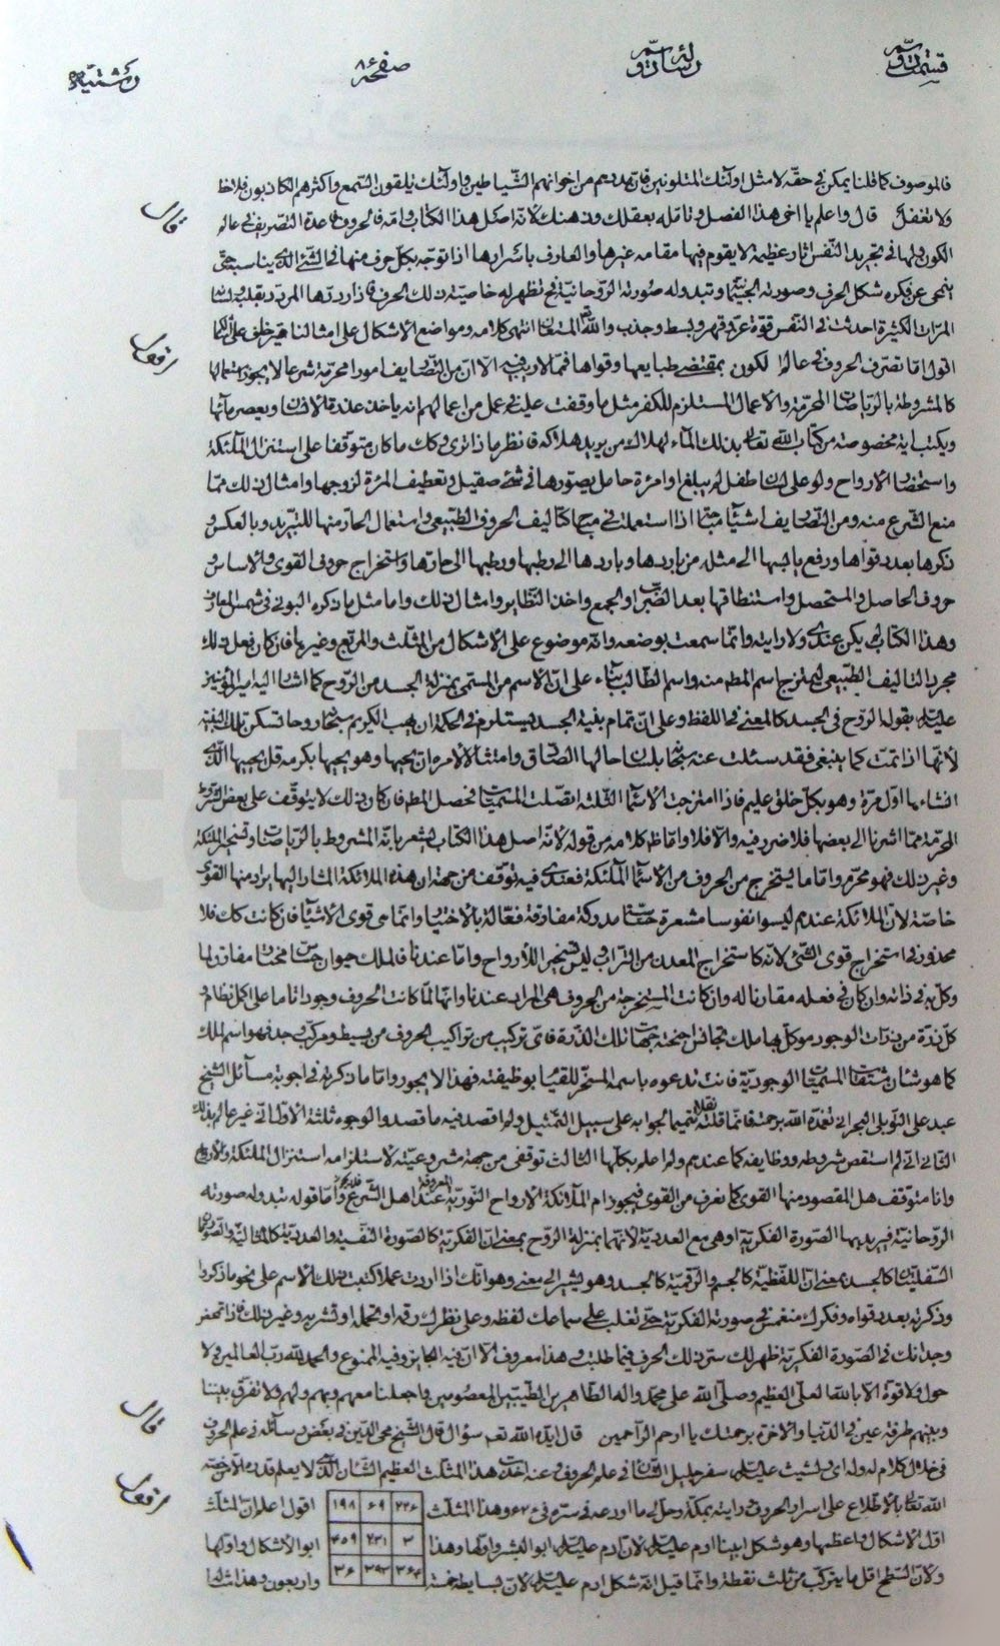 صفحه ۸۶
فالموصوف كما قلنا يمكن فی حقّه لا مثل اولئك المتلونين من اخوانهم الشّياطين واولئك يلقون السّمع واكثرهم الكاذبون فلاحظ
ولا تغفل قال واعلم يا اخی هذا الفصل وتامله بعقلك وذهنك لانّه اصل هذا الكتاب
قال
الكون ولها فی تجريد النّفس اثار عظيمة لا يقوم فيها مقامه غيرها والعارف باسرارها اذا توجّه بكلّ حرف منها الی الشّیء الّذی يناسبه حتّی
ينمحی عن فكره شكل الحرف وصورته وتبدو له صورته الرّوحانيّة تظهر له خاصيّة ذلك الحرف
المرّات الكثيرة احدث فی النّفس قوّة وقهر وبسط وجذب والله المستعان انتهی كلامه ومواضع الاشكال علی امثالنا
اقول
اقول امّا تصرّف الحروف فی عالم الكون بمقتضی طبايعها وقواها فممّا لا ريب فيه الا انّ من التّصاريف امورا محرّمة شرعا لا يجوز استعمالها
كالمشروطة بالرّياضات المحرّمة والاعمال المستلزم للكفر مثل ما وقفت عليه فی عمل من اعمالهم انه ياخذ
ويكتب اية مخصوصة من كتاب الله تعالی بذلك الماء لهلاك من يريد هلاكه فانظر ماذا تری وكك ما كان متوقّفا علی استنزال الملئكة
واستحضار الارواح ولو علی طفل لم يبلغ او امرة حامل يصوّرها فی شیء صقيل وتعطيف المرئة لزوجها وامثال ذلك ممّا
منع الشرع منه ومن التّصاريف اشياء مباحة اذا استعملت فی مباح كتاليف الحروف الطّبيعی واستعمال الحارّ منها للتّبريد وبالعكس
ذكرها بعدد قواها ورفع يابسها الی مثله من باردها وباردها الی رطبها ورطبها الی حارّها واستخراج حروف القوی والاساس
حروف الحاصل والمستحصل واستنطاقها بعد الضّرب او الجمع واخذ النّظاير وامثال ذلك وامّا مثل ما ذكره البونی فی شمس المعارف
وهذا الكتاب لم يكن عندی ولا رايته وانّما سمعت بوضعه وانّه موضوع علی الاشكال من المثلّث والمربّع وغيرها فان كان فعل ذلك
مجرّد التاليف الطّبيعی ليمتزج اسم المطلوب منه واسم الطّالب بناء علی انّ الاسم من المسمّی بمنزلة الجسد من الرّوح كما اشار اليه امير المؤمنين
عليه السلام بقوله الرّوح فی الجسد كالمعنی فی اللفظ وعلی انّ تمام بنية الجسد يستلزم فی الحكمة ان يهب الكريم سبحانه روحا تسكن تلك البنية
لانّها اذا تمّت كما ينبغی فقد سئلت عنه سبحانه بلسان حالها الصّادق وامتثال الامر ان يحييها وهو يحييها بكرمه قل يحييها الّذی
انشاءها اوّل مرّة وهو بكلّ خلق عليم فاذا امتزجت الاسماء الثّلثة اتّصلت المسمّيات فحصل المطلوب فان كان ذلك لا يتوقّف علی بعض
المحرّمة ممّا اشرنا الی بعضها فلا ضرر فيه والّا فلا وامّا ظاهر كلامه من قوله لانّه اصل هذا الكتاب يشعر بانّه المشروط بالرّياضات وتسخير الملئكة
وغير ذلك فهو محرّم وامّا ما يستخرج من الحروف من الاسماء الملئكة فعندی فيه توقّف من جهة ان هذه الملائكة المشار اليها يراد منها القوی
خاصّة لانّ الملائكة عندهم ليسوا نفوسا مشعرة حسّاسة مدركة مفارقة فعّالة بالاختيار وانّما هی قوی الاشياء فان كانت كك فلا
محذور فی استخراج قوی الشّیء لانّه كاستخراج المعدن من التّراب ليس تسخيرا للارواح وامّا عندنا فالملك حيوان حسّاس مختار مفارق
وكلّ به فی ذاته وان كان فی فعله مقارنا له وان كانت المستخرجة من الحروف هی المراد عندنا وانّها لمّا كانت الحروف وجودا تاما علی اكمل نظام
كلّ ذرّة من ذرّات الوجود موكّل بها ملك تلك الذّرة فایّ تركيب من تراكيب الحروف من بسيط ومركّب وجد فهو اسم لملك
كما هو شان المسمّيات الوجوديّة فانت تدعوه باسمه المسخّر للقيام بوظيفته فهذا لا يجوز وامّا ما ذكرته فی اجوبة مسائل الشّيخ
عبد علی التّوبلی البحرانی تغمّده الله برحمته فانّما قلته نقلا تتميما لجوابه علی سبيل التّمثيل ولم اقصد فيه ما قصدوا لوجوه ثلثة الاوّل انّی غير عالم بذلك
الثّانی انّی لم استقص شروطه ووظايفه كما عندهم ولم اعلم بكلّها الثّالث توقّفی من جهة مشروعيّته لاستلزامه استنزال الملئكة والارواح
وانا متوقّف هل المقصود منها القوی كما نعرف من القوی فيجوز ام الملائكة الارواح النّوريّة المعروفة عند اهل الشّرع وامّا قوله تبدو له صورته
الرّوحانيّة فيريد بها الصّورة الفكريّة او هی مع العدديّة لانّهما بمنزلة الرّوح بمعنی انّ الفكريّة كالصّورة النّفسيّة والعدديّة كالمثاليّة
السّفليّتان كالجسد بمعنی انّ اللّفظيّة كالجسم والرّقميّة كالجسد وهو يشير الی معنی وهو انّك اذا اردت عملا كتبت ذلك الاسم علی نحو ما ذكروا
وذكرته بعدد قواه وفكرك منغمس فی صورته الفكريّة حتّی تغلب علی سماعك لفظه وعلی نظرك رقمه او تحمله او تشربه وغير ذلك
وجدانك فی الصّورة الفكريّة ظهر لك سرّ ذلك الحرف فيما طلبت وهذا معروف الا انّ فيه الجايز وفيه الممنوع والحمد لله ربّ العالمين ولا
حول ولا قوّة الّا بالله العلیّ العظيم وصلّی الله علی محمّد واله الطّاهرين الطّيّبين المعصومين واجعلنا معهم وبهم ولهم ولا تفرّق بيننا
وبينهم طرفة عين فی الدّنيا والاخرة برحمتك يا ارحم الرّاحمين قال ايّده الله نعم سؤال قال الشّيخ محی الدّين فی بعض رسائله فی علم الحروف
قال
فی خلال كلام له ولدای ولشيث عليه السلام سفر جليل الشّان فی علم الحروف وعنه اخذت هذا المثلّث العظيم الشّان الّذی لا يعلم قدره الّا من خصّه
الله تعالی بالاطّلاع علی اسرار الحروف رايته بمكّة وحلّ لی ما اودعه فی سرّه وهذا المثلّث ۲۲۶ ۶۹ ۱۹۸ اقول اعلم انّ المثلّث
اقول
اوّل الاشكال واعظمها وهو شكل ابينا ادم عليه السلام لانّ ادم عليه السلام ابو البشر واوّلها وهذا ۳ ۲۳۱ ۴۵۹ ابو الاشكال واوّلها
ولانّ السّطح اقلّ ما يتركّب من ثلث نقطة وانّما قيل انّه شكل ادم عليه السلام لانّ بسايطه خمسة ۲۶۴ ۳۹۳ ۳۶ واربعون وهذا